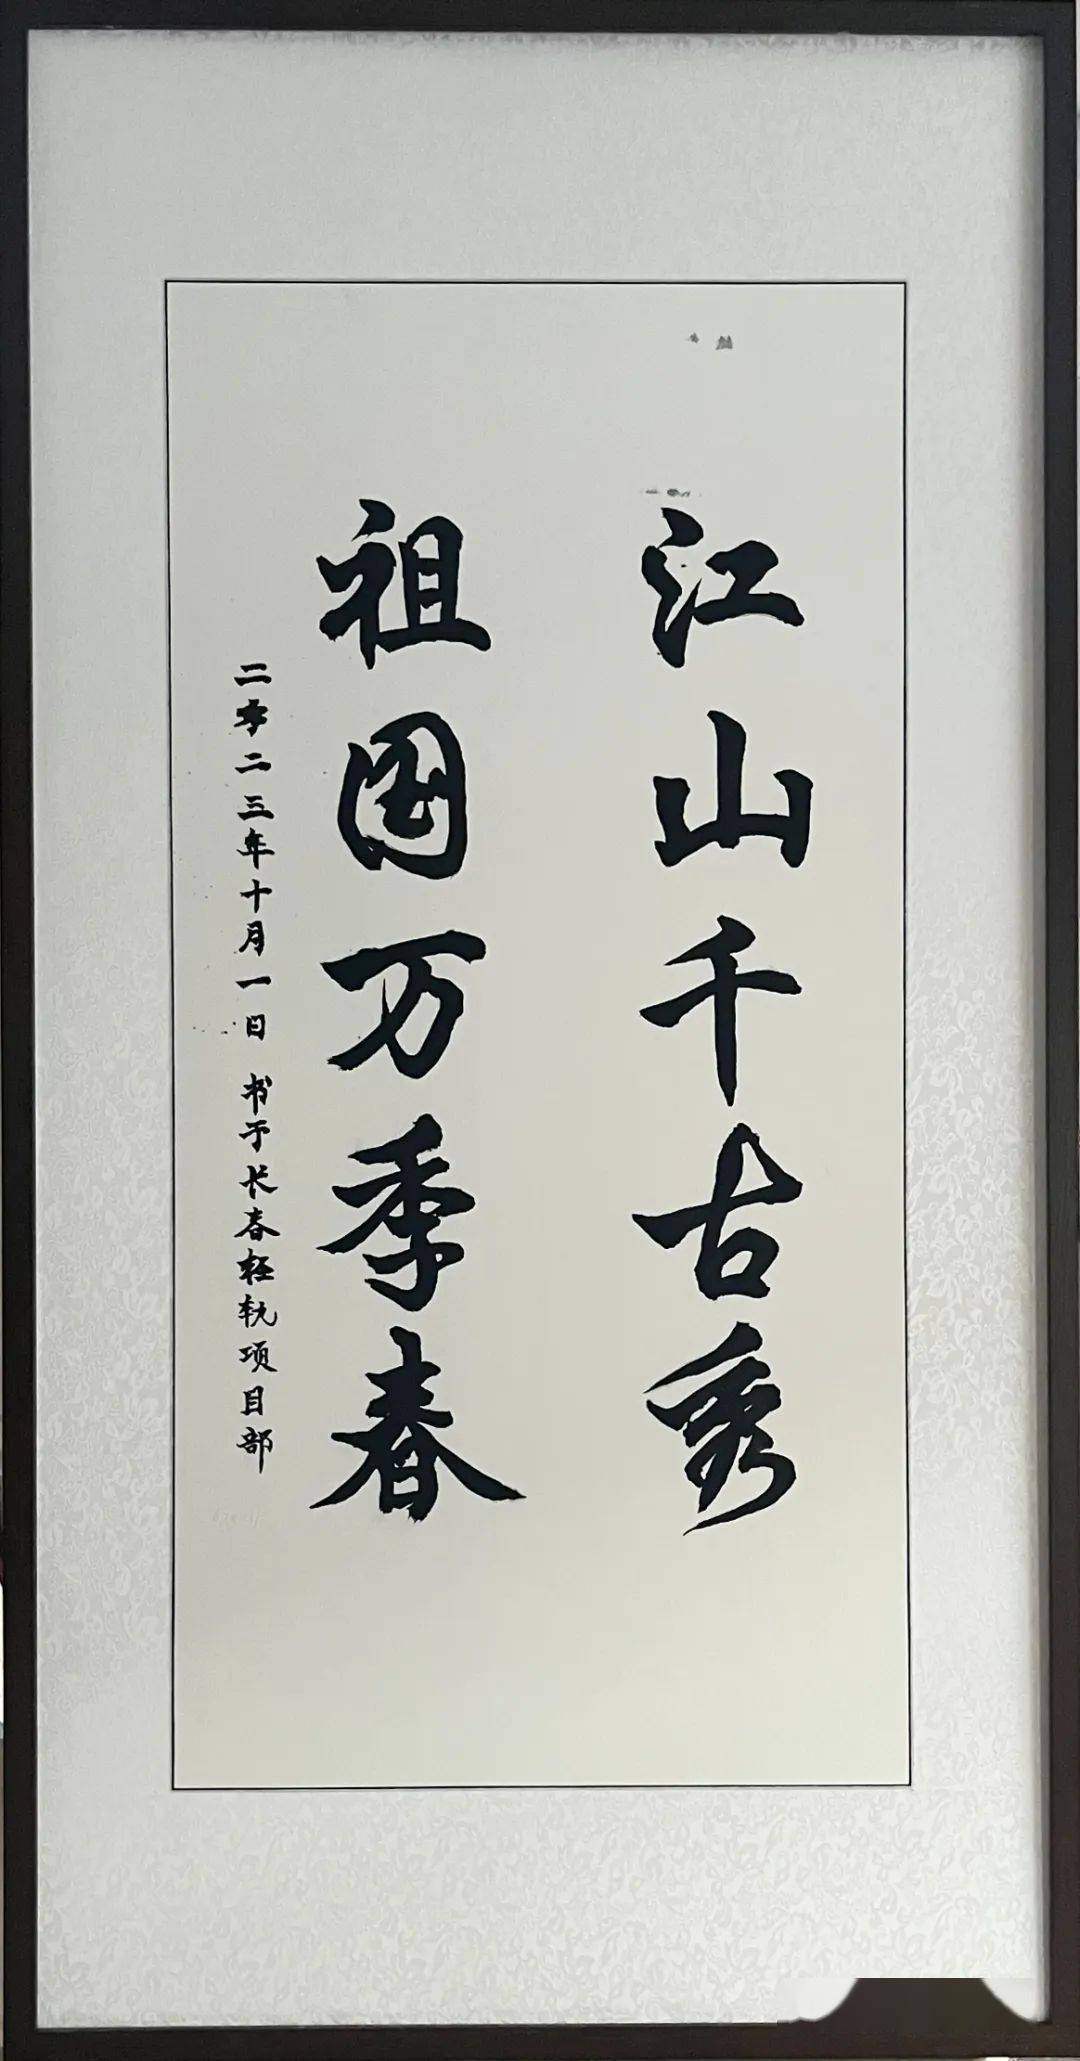 江山千古秀
祖国万季春
二零二三年十月一日 书于长春轻轨项目部